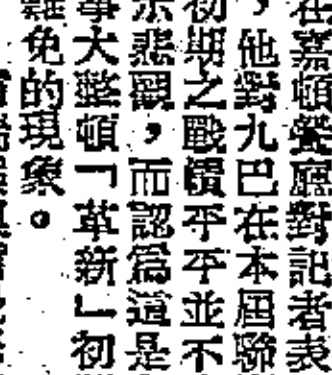 在嘉頓餐廳對記者表
，他對九巴在本屆聯
初期之戰績平平並不
示悲觀，而認爲這是
事大整頓「革新」初
難免的現象。